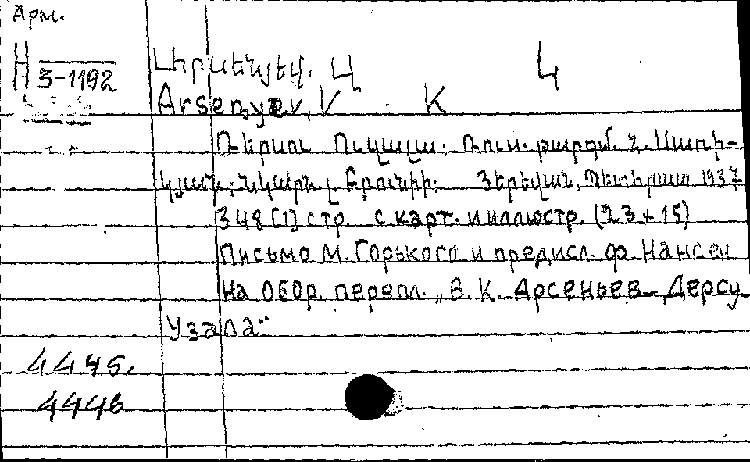 Арм.
Н 3-1192
Արսենյեվ. Վ Կ
Arsenyev, V K
Դերսու Ուզալա. Ռուս. թարգմ. Ն. Սարի-
կյան. նկարն Երևան, Պետհրատ 1937
348 [1] стр с карт. и иллюстр. (23×15)
Письмо М. Горького и предисл. Ф. Нансен
На обор. перепл. „В. К. Арсеньев Дерсу
Узала“
4445.
4446